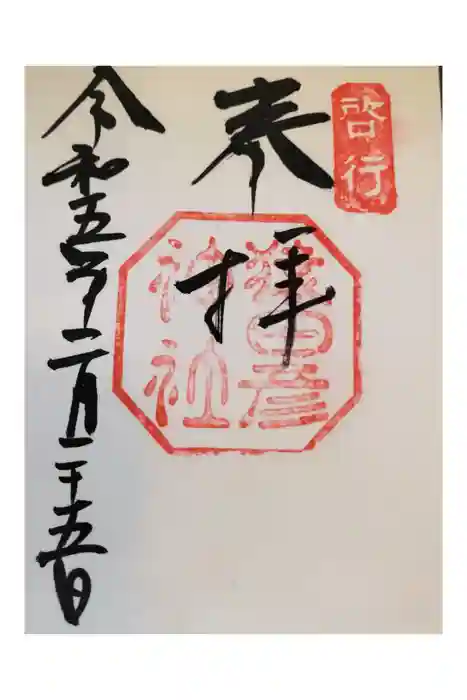 啓行
奉拝
猿田彦
神社
令和五年二月二十五日